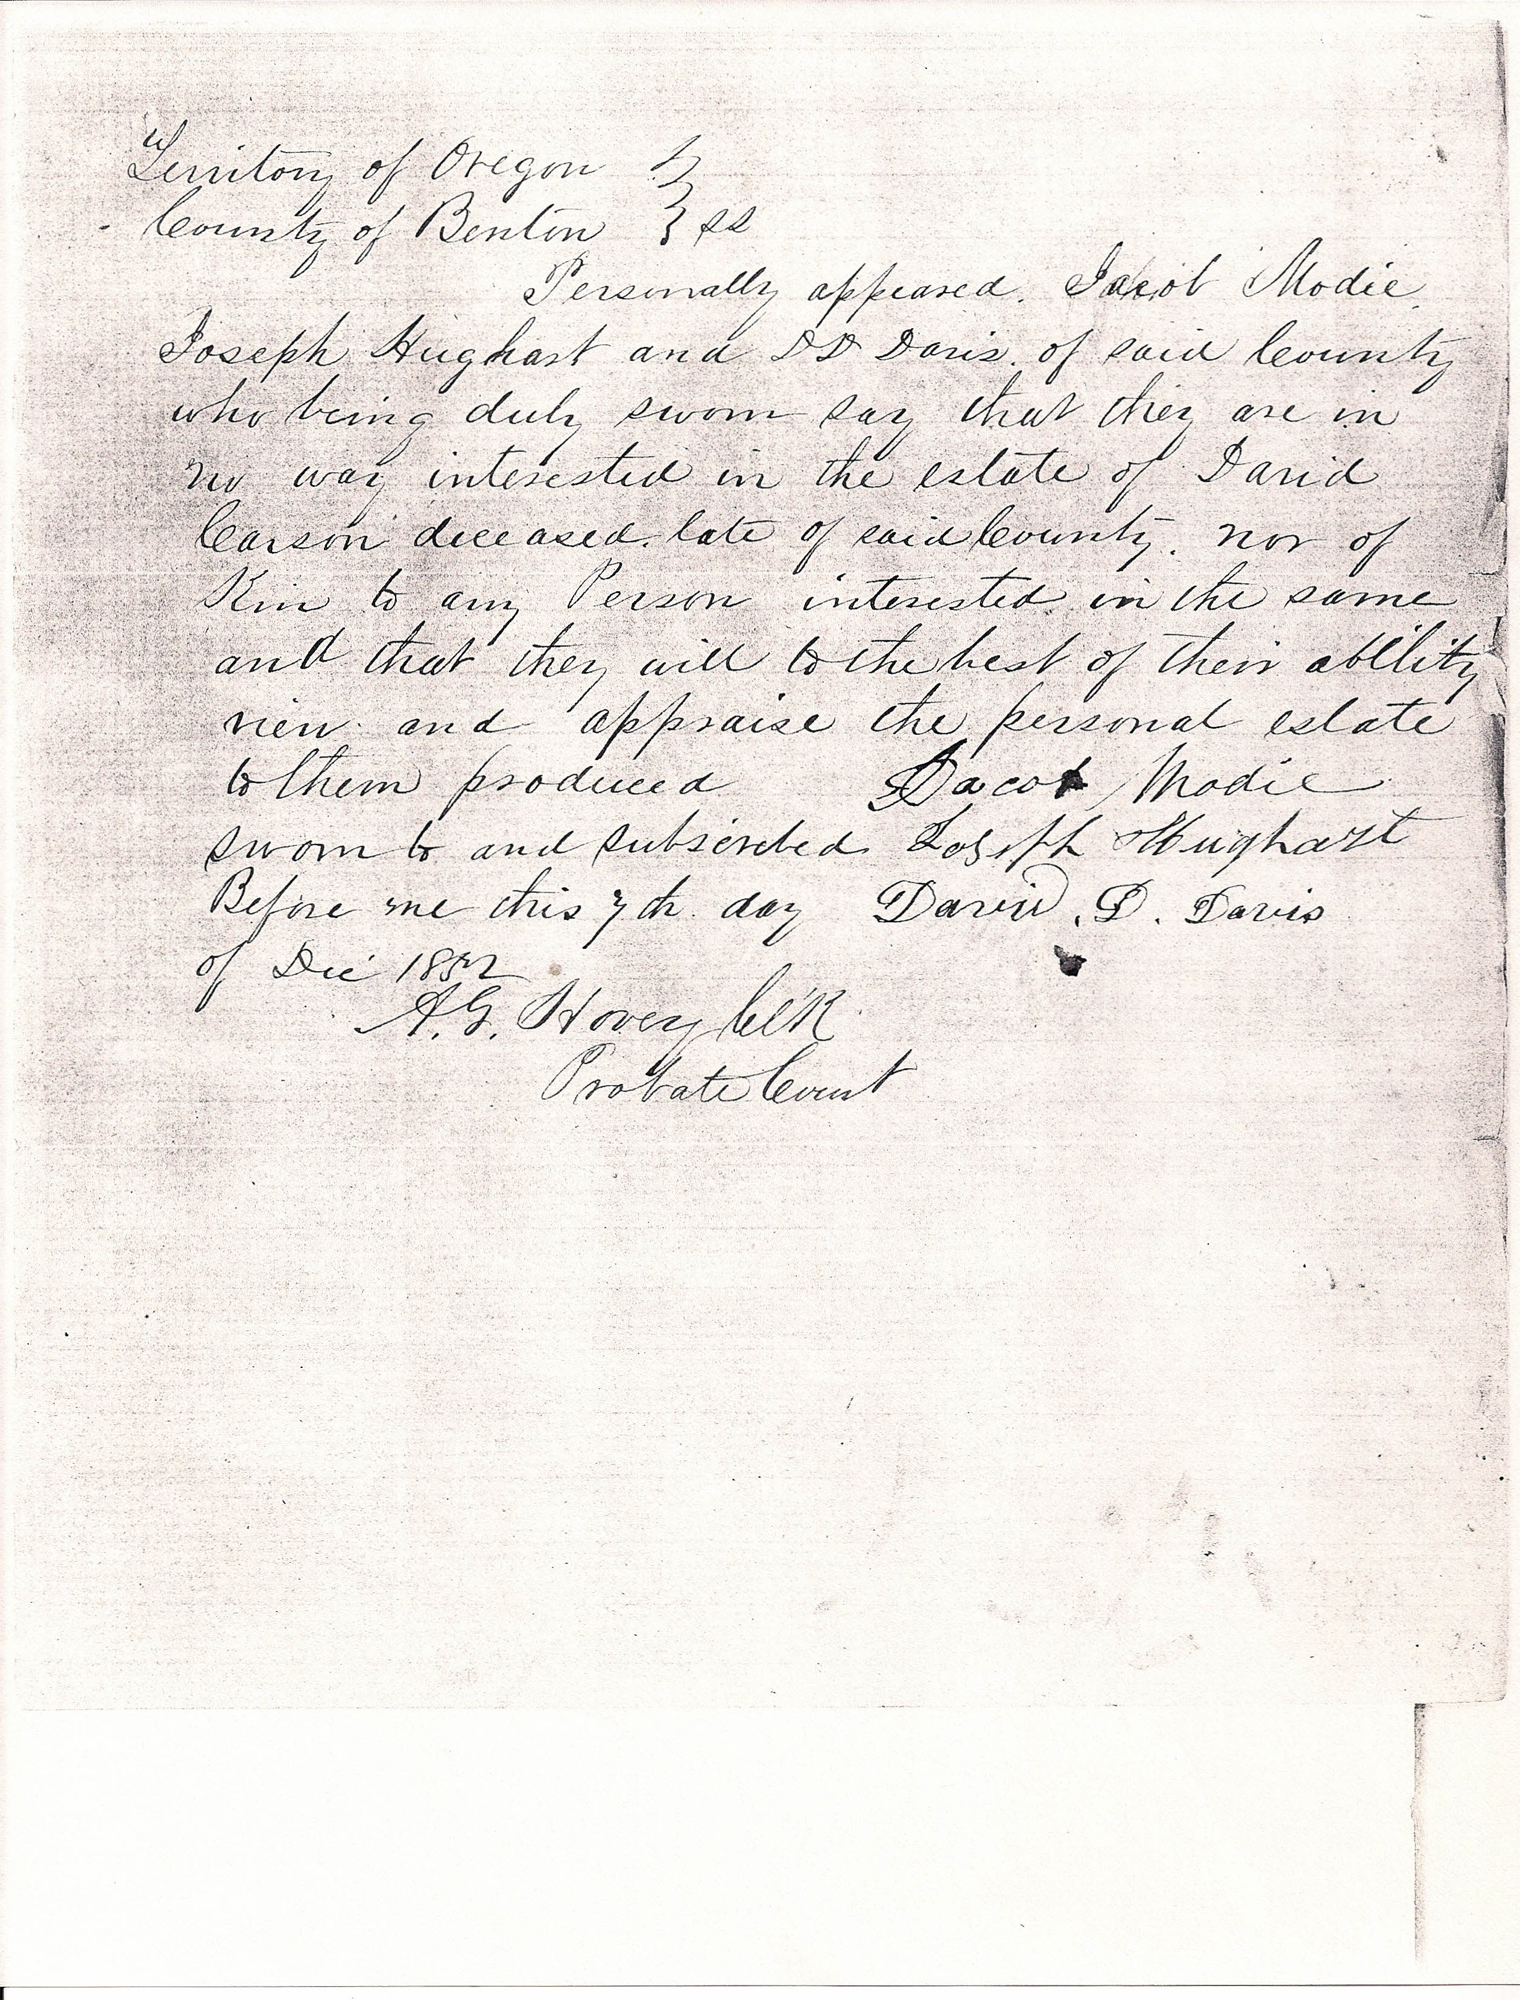 Territory of Oregon }
County of Benton } ss
Personally appeared. Jacob Modie
Joseph Hughart and D D Davis. of said County
who being duly sworn say that they are in
no way interested in the estate of David
Carson deceased. late of said County. nor of
Kin to any Person interested in the same
and that they will to the best of their abllity
view and appraise the personal estate
to them produced Jacob Modie
sworn to and subscrebed Joseph Hughart
Before me this 7th day David. D. Davis
of Dec 1852
A. G. Hovey Cl'k
Probate Court